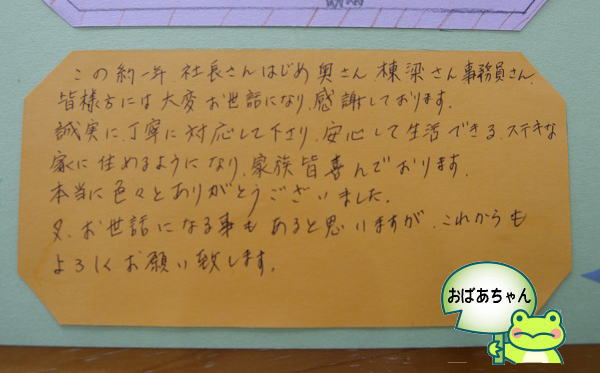 この約一年 社長さんはじめ奥さん、棟梁さん事務員さん、
皆様方には大変お世話になり、感謝しております。
誠実に、丁寧に対応して下さり、安心して生活できる、ステキな
家に住めるようになり、家族皆喜んでおります。
本当に色々とありがとうございました。
又、お世話になる事もあると思いますが、これからも
よろしくお願い致します。
おばあちゃん